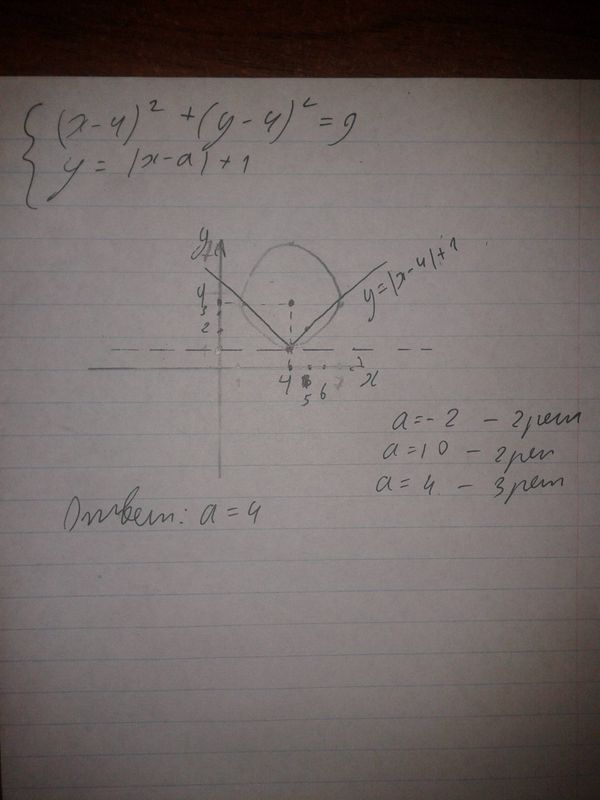 (x-4)² + (y-4)² = 9
y = |x-a| + 1
y
7
y=|x-4|+1
4
3
2
4 5 6 7 x
a=-2 - 2 реш
a=10 - 2 реш
a=4 - 3 реш
Ответ: a=4